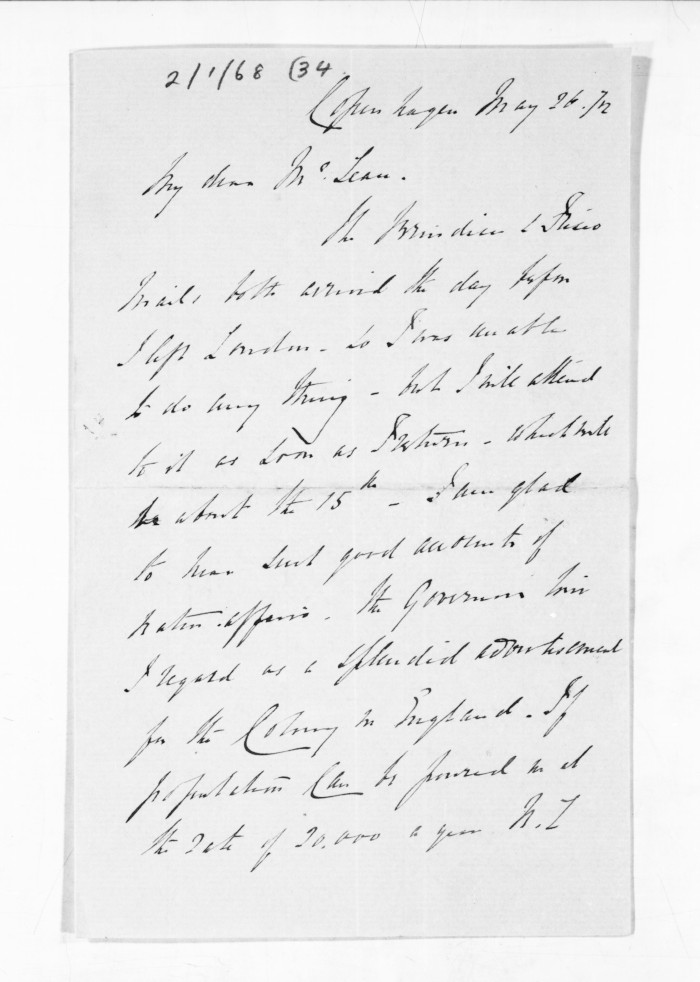 2/1/68 (34
Copenhagen May 26. /72
My dear McLean.
The Brindisi & Frisco
Mails both arrived the day before
I left London - so I was unable
to do any thing - but I will attend
to it as soon as I return - which will
be about the 15th - I am glad
to hear such good accounts of
native affairs. The Governor's
I regard as a splendid advertisement
for the Colony in England. If
population can be poured in at
the rate of 20,000 a year N.Z